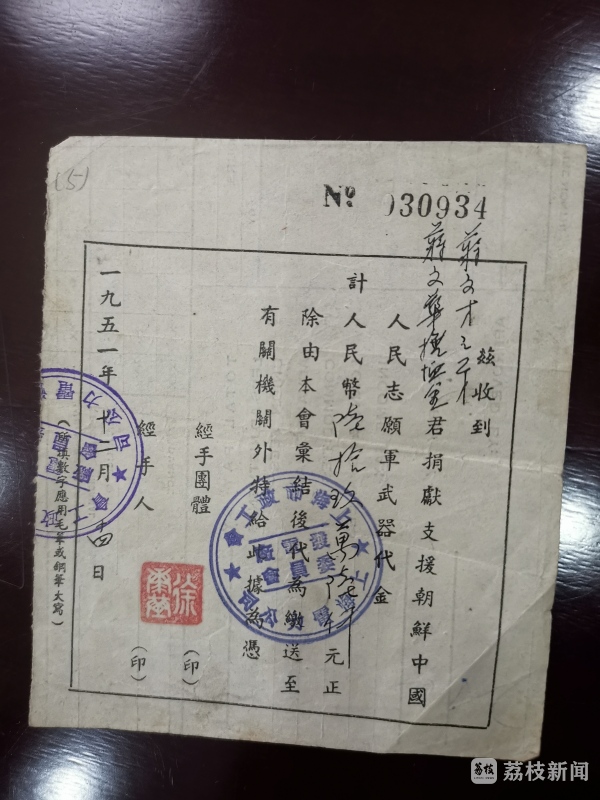 (5)
№ 030934
茲收到
蔣文才之子
蔣文華撫恤金君捐獻支援朝鮮中國
人民志願軍武器代金
計人民幣陸拾玖萬陸仟元正
除由本會彙結後代為繳送至
有關機關外特給此據為憑
經手團體 (印)
經手人 (印)
一九五一年十二月十四日
(所填數字應用毛筆或鋼筆大寫)
荔枝
荔枝新闻